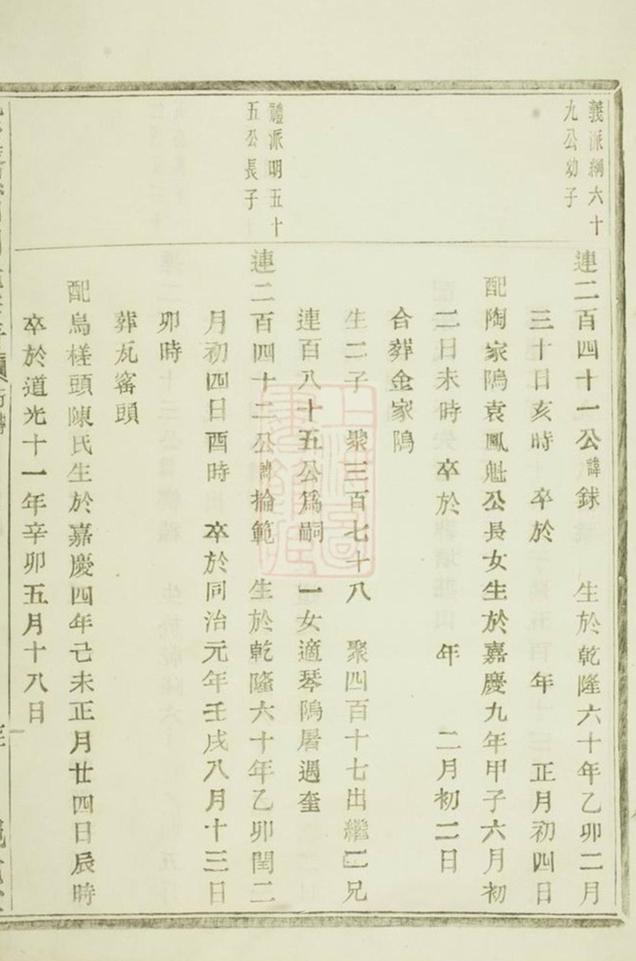 義派綱六十
九公幼子
連二百四十一公諱銶 生於乾隆六十年乙卯二月
三十日亥時 卒於 年 正月初四日
配陶家隝袁鳳魁公長女生於嘉慶九年甲子六月初
二日未時 卒於 年 二月初二日
合葬金家隝
生二子 聚三百七十八 聚四百十七出繼二兄
連百八十五公爲嗣 一女適琴隝屠遇奎
禮派明五十
五公長子
連二百四十二公諱掄範 生於乾隆六十年乙卯閏二
月初四日酉時 卒於同治元年壬戌八月十三日
卯時
葬瓦窑頭
配烏槎頭陳氏生於嘉慶四年己未正月廿四日辰時
卒於道光十一年辛卯五月十八日